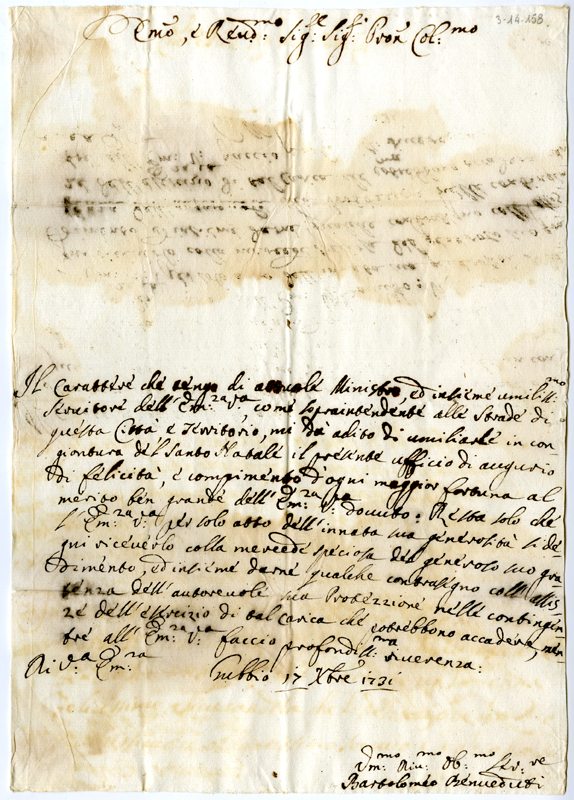 3-14-158
Emo, e Revd:mo Sig:r Sig:r Pron Col:mo
Il Carattere che tengo di attuale Ministro, ed insieme umiliss:mo
servitore dell'Em:za V:ra, come sopraintendente alle strade di
questa Città e Territorio, mi dà adito di umiliarle in con-
giontura del Santo Natale il presente ufficio di augurio
di felicità, e compimento d'ogni maggior fortuna al
merito ben grande dell'Em:za V:ra dovuto: Resta solo che
l'Em:za V:ra per solo atto dell'innata sua generosità si de-
gni riceverlo colla mercede speciosa del generoso suo gra-
dimento, ed insieme darne qualche contrasegno coll'assis-
tenza dell'autorevole sua Protezzione nelle contingen-
ze dell'esercizio di tal Carica che potrebbono accadere, men-
tre all'Em:za V:ra faccio profondiss:ma riverenza:
Di V:ra Em:za
Gubbio 17 Xbre 1731
Um:mo Div:mo Ob:mo Serv:re
Bartolomeo Benveduti